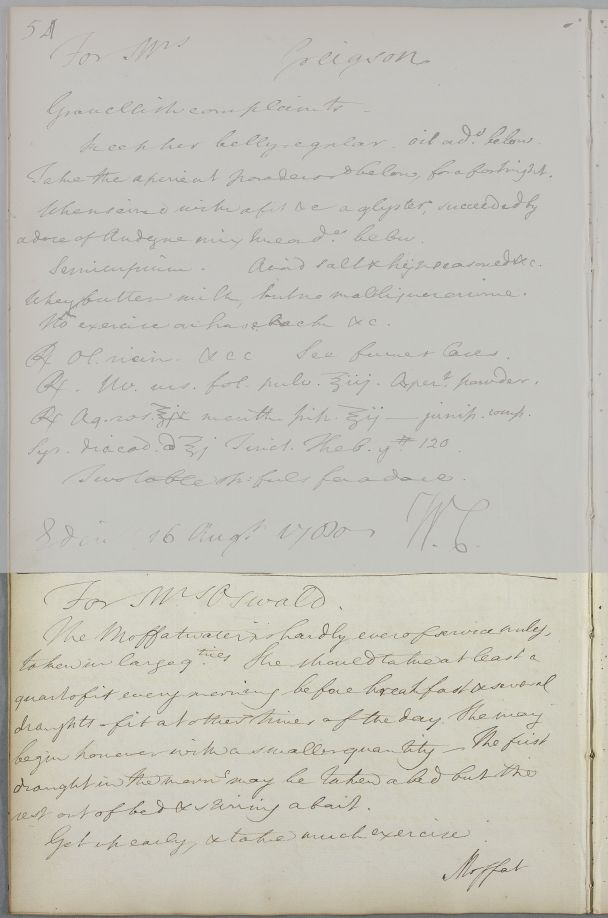 54
For Mrs Greigson
Gravellish complaints -
Keep her belly regular. oil ad.d below.
Take the aperient powders below, for a fortnight.
When seized with a fit &c a glyster, succeeded by
a dose of Anodyne mixture ad.d below.
Semicupium. Avoid salt & high seasoned &c.
Whey butter milk, but no malt liquor or wine.
No exercise on horseback &c.
℞ Ol. ricin. &cc See former Cases.
℞. Uv. urs. fol. pulv. ℥iij. Aper.t powder.
℞ Aq. ros. menth. pip. ℥ij — junip. comp.
Syr. diacod. a ℥j Tinct. Theb. gtt 120
Two table sp:fuls for a dose.
Edin 16 Aug.t 1780 W.C.
For Mrs Oswald.
The Moffat water is hardly ever of service unless
taken in large q.ties She should take at least a
quart of it every morning before breakfast & several
draughts of it at other times of the day. She may
begin however with a smaller quantity — The first
draught in the morn.g may be taken abed but the
rest out of bed & stirring about.
Get up early, & take much exercise
Moffat